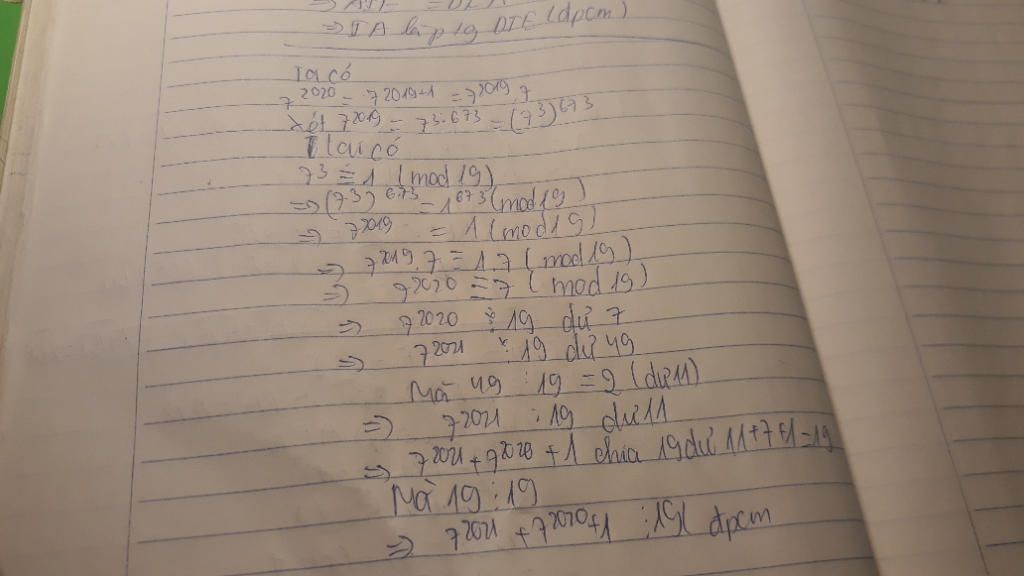 ⇒ IA là p/g DIE (đpcm)
Ta có
7^2020 = 7^2019+1 = 7^2019.7
Xét 7^2019 = 7^3.673 = (7^3)^673
Ta có
7^3 ≡ 1 (mod 19)
⇒ (7^3)^673 = 1^673 (mod 19)
⇒ 7^2019 = 1 (mod 19)
⇒ 7^2019.7 ≡ 1.7 (mod 19)
⇒ 7^2020 ≡ 7 (mod 19)
⇒ 7^2020 : 19 dư 7
⇒ 7^2021 : 19 dư 49
Mà 49 : 19 = 2 (dư 11)
⇒ 7^2021 : 19 dư 11
⇒ 7^2021 + 7^2020 + 1 chia 19 dư 11+7+1=19
Mà 19 ⋮ 19
⇒ 7^2021 + 7^2020 + 1 ⋮ 19 đpcm